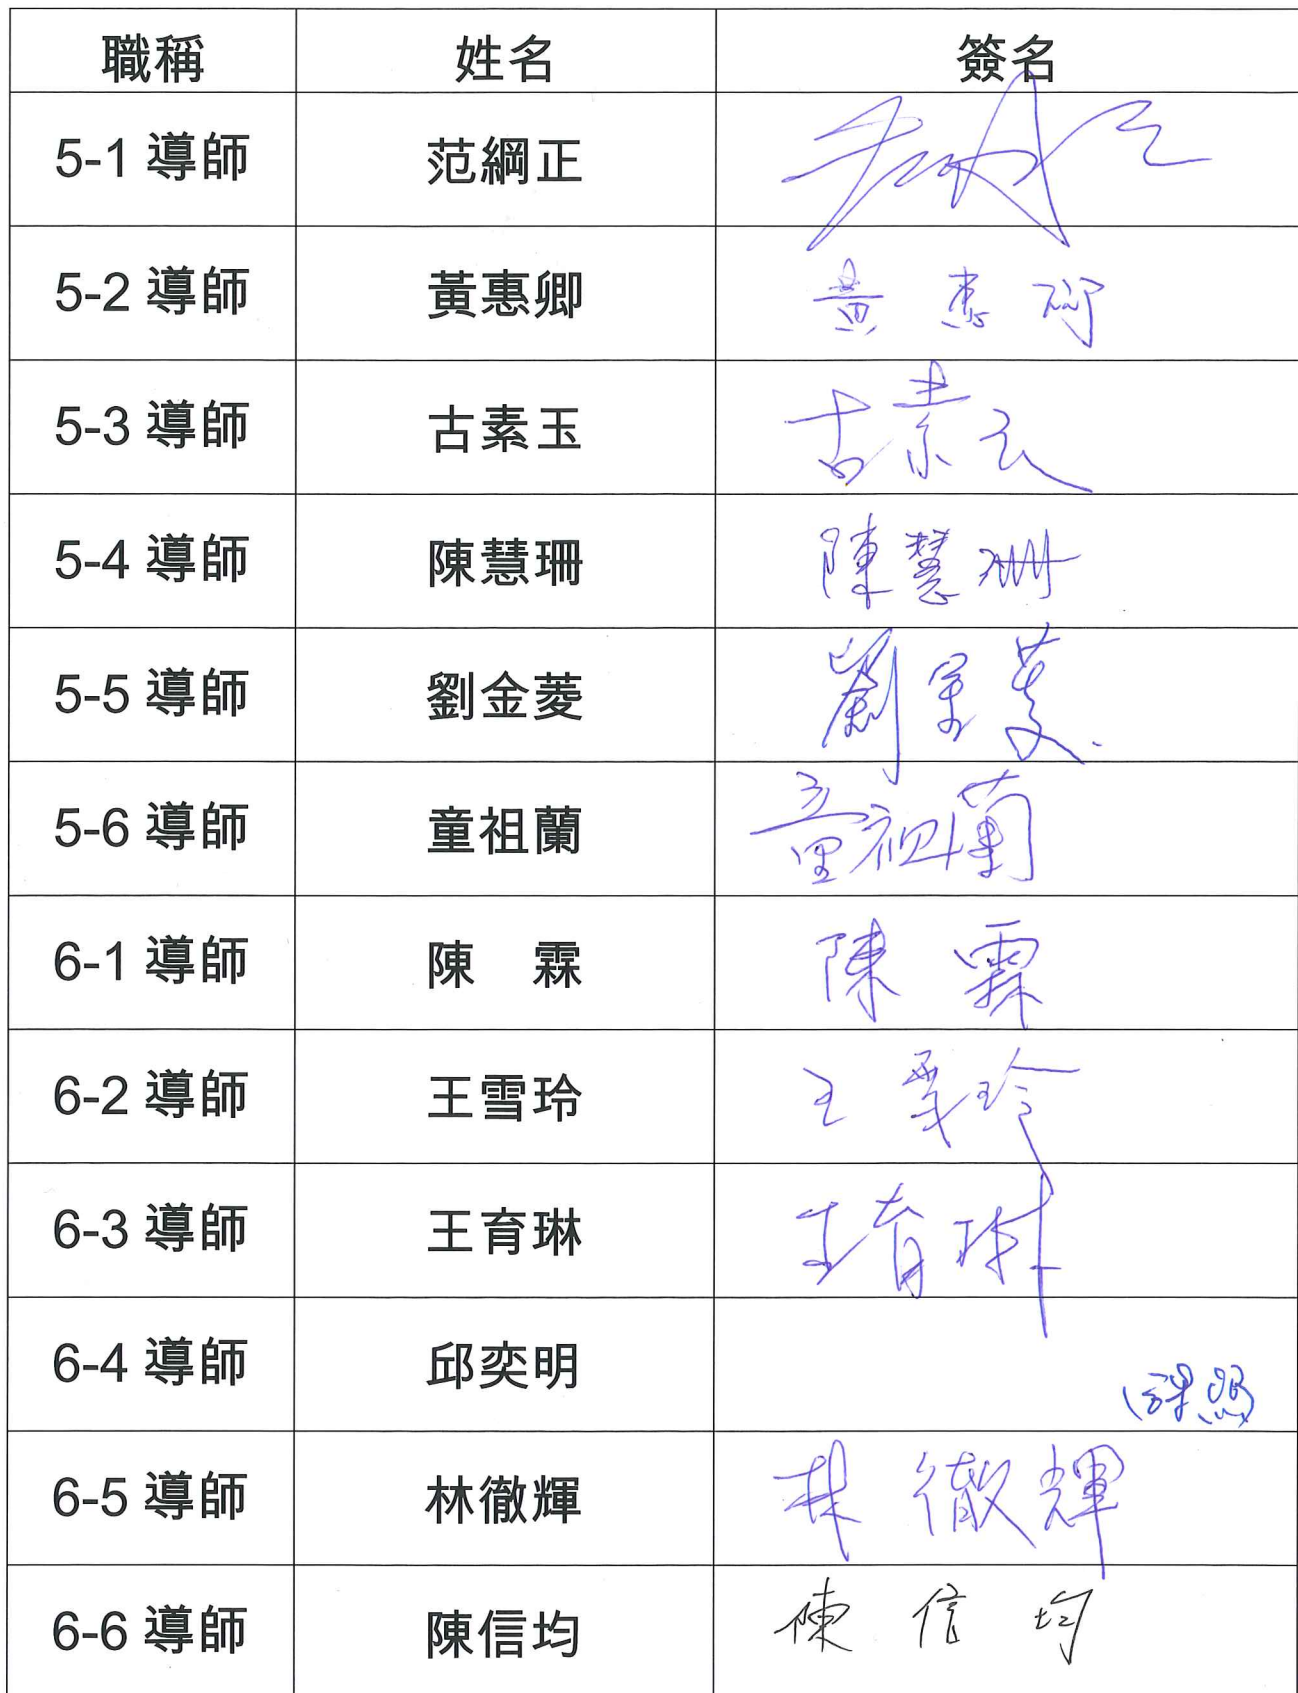 職稱 姓名 簽名
5-1 導師 范綱正 范綱正
5-2 導師 黃惠卿 黃惠卿
5-3 導師 古素玉 古素玉
5-4 導師 陳慧珊 陳慧珊
5-5 導師 劉金菱 劉金菱
5-6 導師 童祖蘭 童祖蘭
6-1 導師 陳 霖 陳 霖
6-2 導師 王雪玲 王雪玲
6-3 導師 王育琳 王育琳
6-4 導師 邱奕明
6-5 導師 林徹輝 林徹輝
6-6 導師 陳信均 陳信均